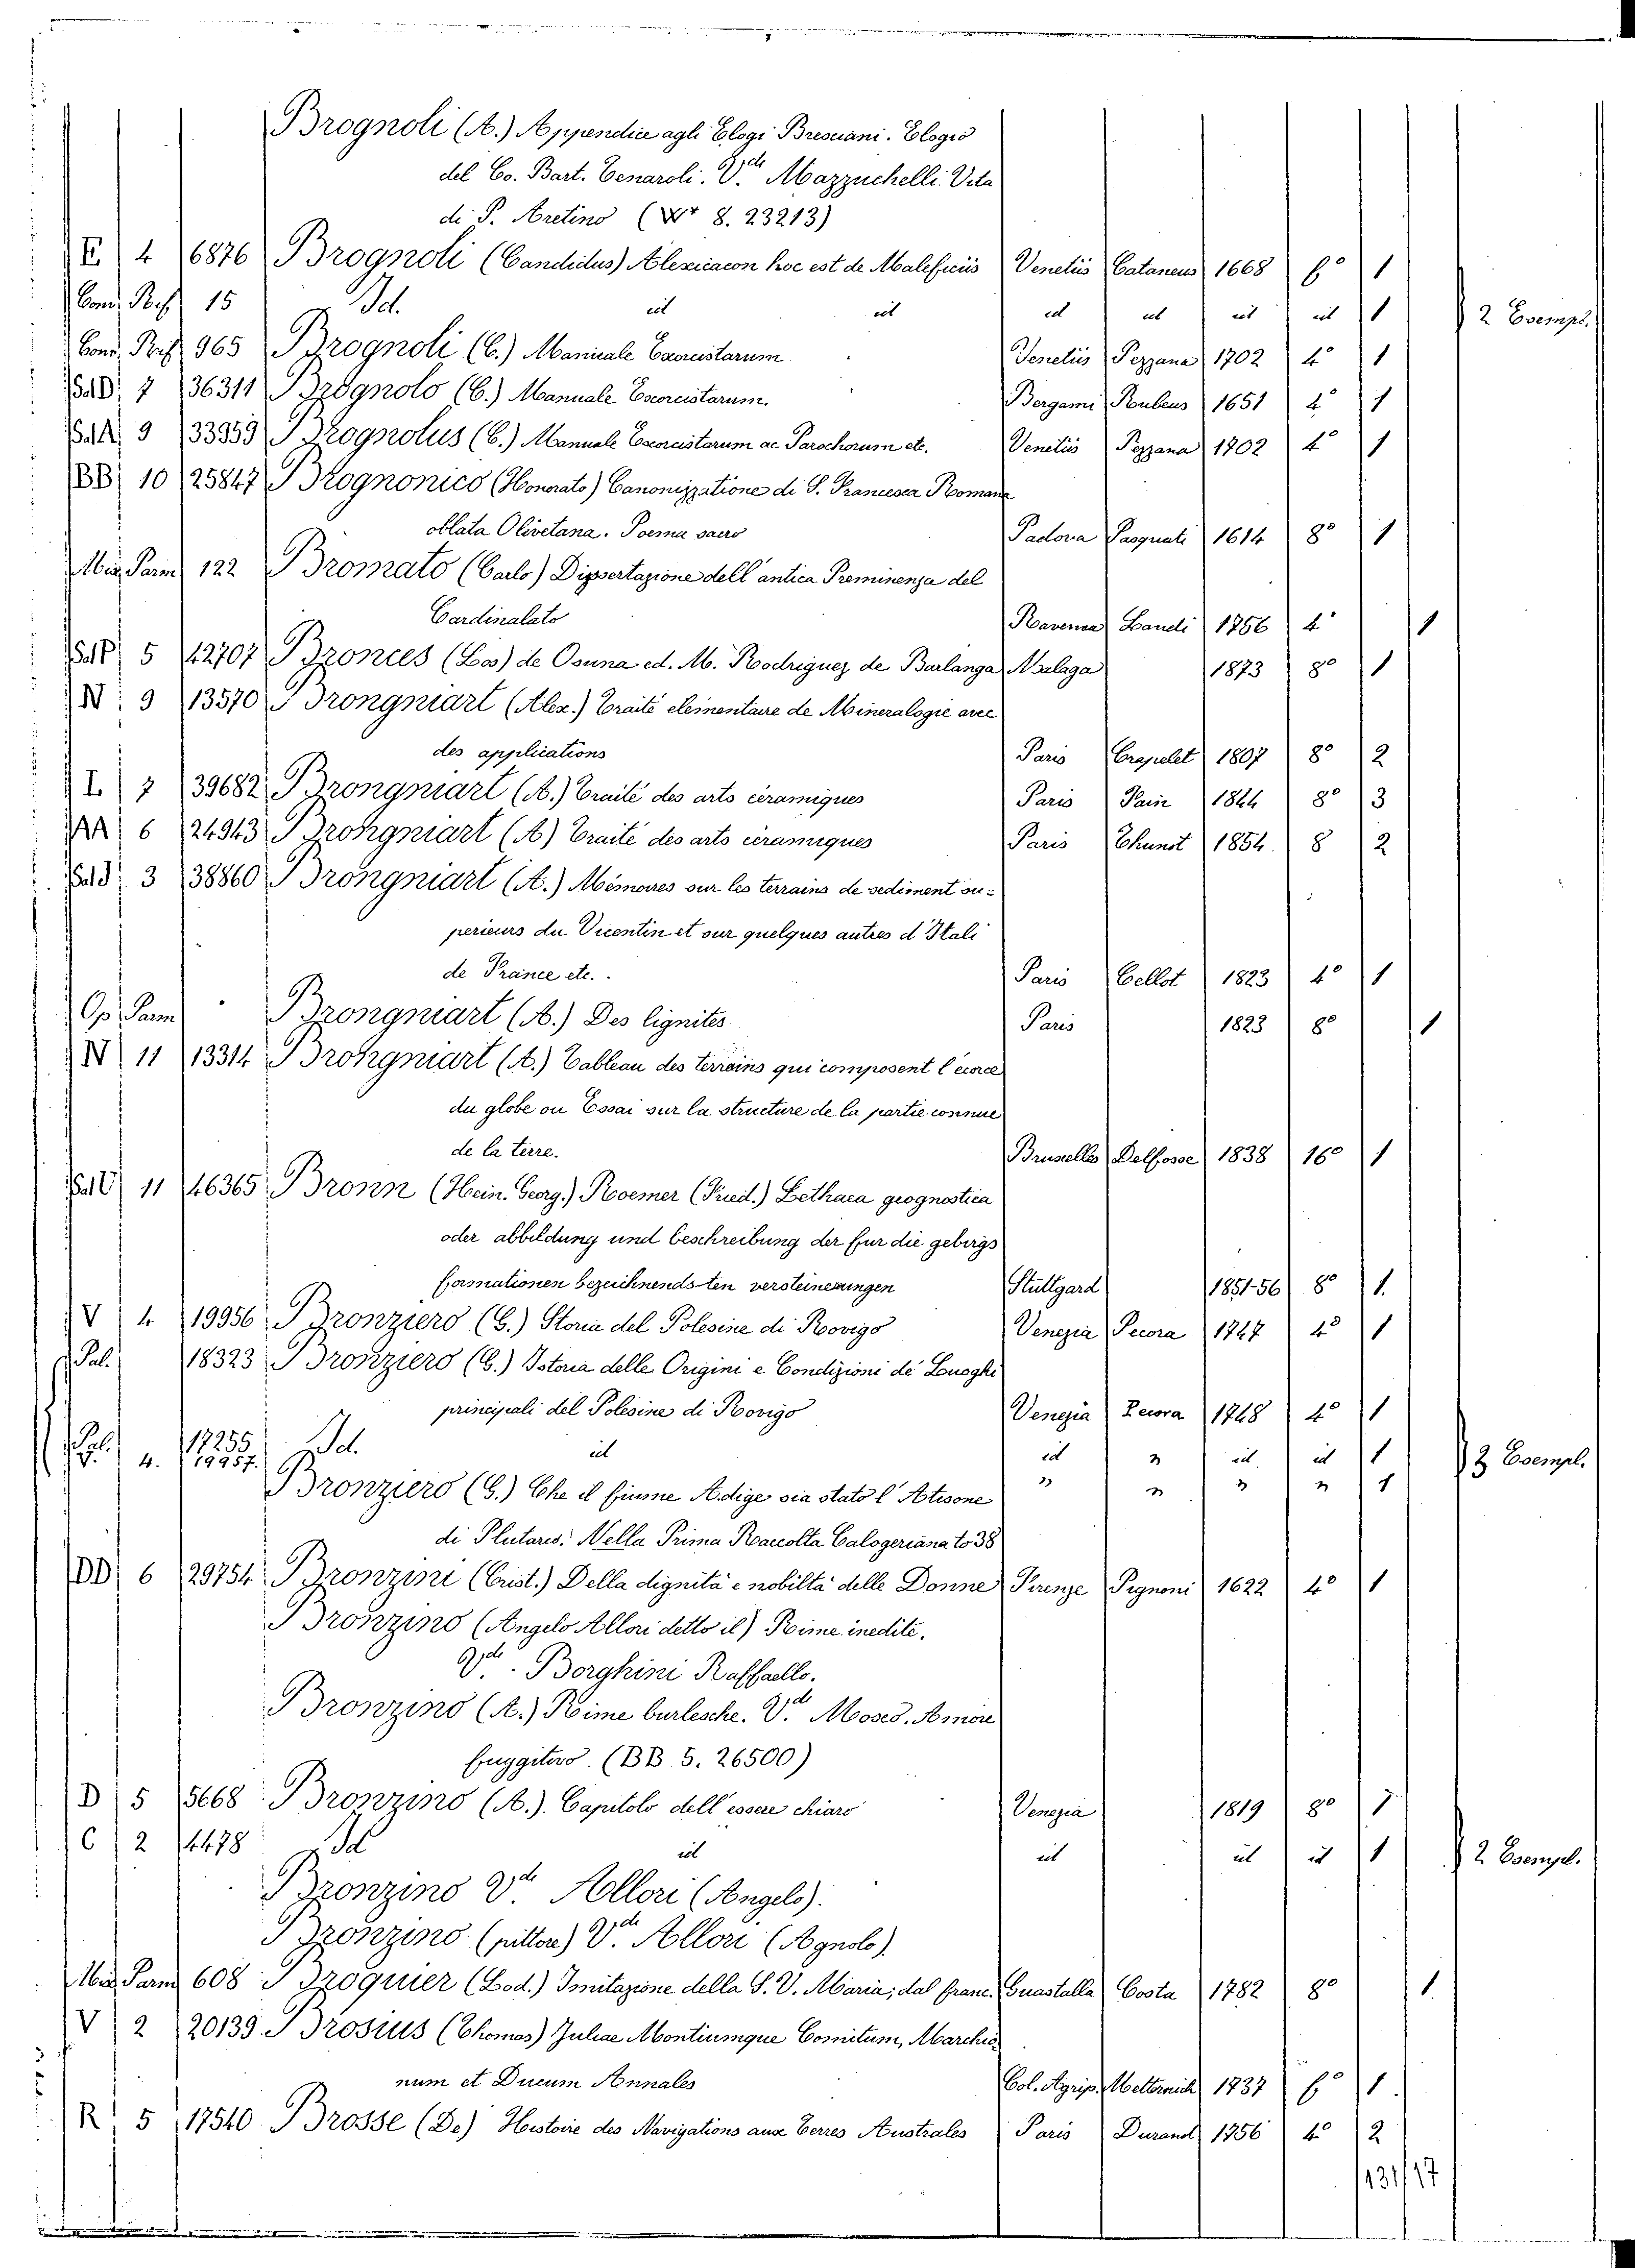 Brognoli (A.) Appendice agli Elogi Bresciani. Elogio
del Co. Bart. Cenaroli. V.de Mazzuchelli. Vita
di P. Aretino ( 8. 23213)
E 4 6876 Brognoli (Candidus) Alexicacon hoc est de Maleficiis Venetiis Cataneus 1668 f° 1
Cons. Ref. 15 Id. id id id id id id 1 2 Esempl.
Cons. Ref. 965 Brognoli (C.) Manuale Exorcistarum Venetiis Pezzana 1702 4° 1
Sal D. 7 36311 Brognolo (C.) Manuale Exorcistarum. Bergami Rubeus 1651 4° 1
Sal A. 9 33959 Brognolus (C.) Manuale Exorcistarum ac Parochorum etc. Venetiis Pezzana 1702 4° 1
BB 10 25847 Brognonico (Honorato) Canonizzatione di S. Francesca Romana
oblata Olivetana. Poema sacro Padova Pasquati 1614 8° 1
Mis. Parm 122 Bromato (Carlo) Dissertazione dell'antica Preminenza del
Cardinalato Ravenna Landi 1756 4° 1
Sal P. 5 42707 Bronces (Los) de Osuna ed. M. Rodriguez de Barlanga Malaga 1873 8° 1
N. 9 13570 Brongniart (Alex.) Traité elementaire de Mineralogie avec
des applications Paris Crapelet 1807 8° 2
I. 7 39682 Brongniart (A.) Traité des arts céramiques Paris Pain 1844 8° 3
AA 6 24943 Brongniart (A) Traité des arts céramiques Paris Thunot 1854 8 2
Sal d. 3 38860 Brongniart (A.) Mémoires sur les terrains de sediment su=
perieurs du Vicentin et sur quelques autres d'Itali
de France etc. Paris Cellot 1823 4° 1
Op. Parm Brongniart (A.) Des lignites Paris 1823 8° 1
N 11 13314 Brongniart (A.) Tableau des terrains qui composent l'écorce
du globe ou Essai sur la structure de la partie connue
de la terre. Bruxelles Delfosse 1838 16° 1
Sal U 11 46365 Bronn (Hein. Georg.) Roemer (Fried.) Lethaea geognostica
oder abbildung und beschreibung der fur die gebirgs
formationen bezeichnends-ten versteinerungen Stuttgard 1851-56 8° 1.
V 4 19956 Bronziero (G.) Storia del Polesine di Rovigo Venezia Pecora 1747 4° 1
Pal. 18323 Bronziero (G.) Istoria delle Origini e Condizioni de' Luoghi
principali del Polesine di Rovigo Venezia Pecora 1748 4° 1
Pal. 17255 Id. id id " id. id 1 3 Esempl.
V. 4. 19957. " " " " 1
Bronziero (G.) Che il fiume Adige sia stato l'Atisone
di Plutarco. Nella Prima Raccolta Calogeriana to 38
DD 6 29754 Bronzini (Crist.) Della dignità e nobiltà delle Donne Firenze Pignoni 1622 4° 1
Bronzino (Angelo Allori detto il) Rime inedite.
V.de. Borghini Raffaello.
Bronzino (A.) Rime burlesche. V.de Mosco. Amore
fuggitivo. (BB 5. 26500)
D 5 5668 Bronzino (A.). Capitolo dell'essere chiaro Venezia 1819 8° 1
C 2 4478 Id id id id id 1 2 Esempl.
Bronzino V.de Allori (Angelo).
Bronzino (pittore) V.de Allori (Agnolo).
Mis. Parm 608 Broquier (Lod.) Imitazione della S. V. Maria; dal franc. Guastalla Costa 1782 8° 1.
V 2 20139. Brosius (Thomas) Juliae Montiumque Comitum, Marchio=
num et Ducum Annales Col. Agrip. Metternich 1737 f° 1.
R. 5 17540 Brosse (De) Histoire des Navigations aux Terres Australes Paris Durand 1756 4° 2
131/17